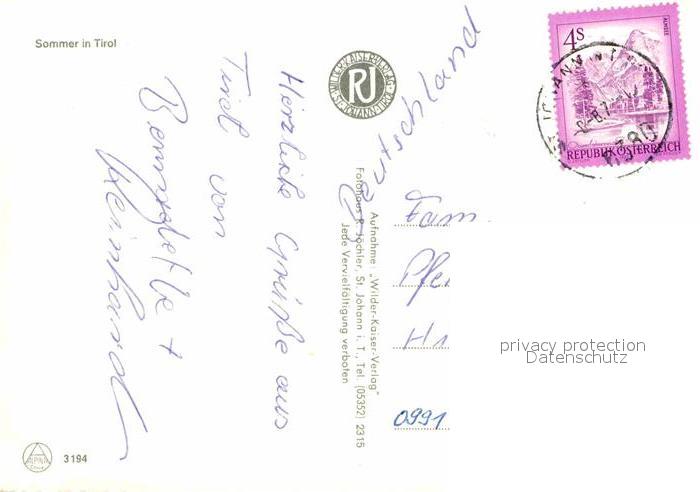 Sommer in Tirol
Herzliche Grüße aus
Tirol von
Bernadette +
Reinhard
WILDER-KAISER-VERLAG
ST. JOHANN, TIROL
RJ
Aufnahme: „Wilder-Kaiser-Verlag"
Fotohaus R. Jöchler, St. Johann i. T., Tel. (05352) 2315
Jede Vervielfältigung verboten
4S
ALMSEE
REPUBLIK ÖSTERREICH
6380
Fam.
Pfei
Deutschland
0991
privacy protection
Datenschutz
3194